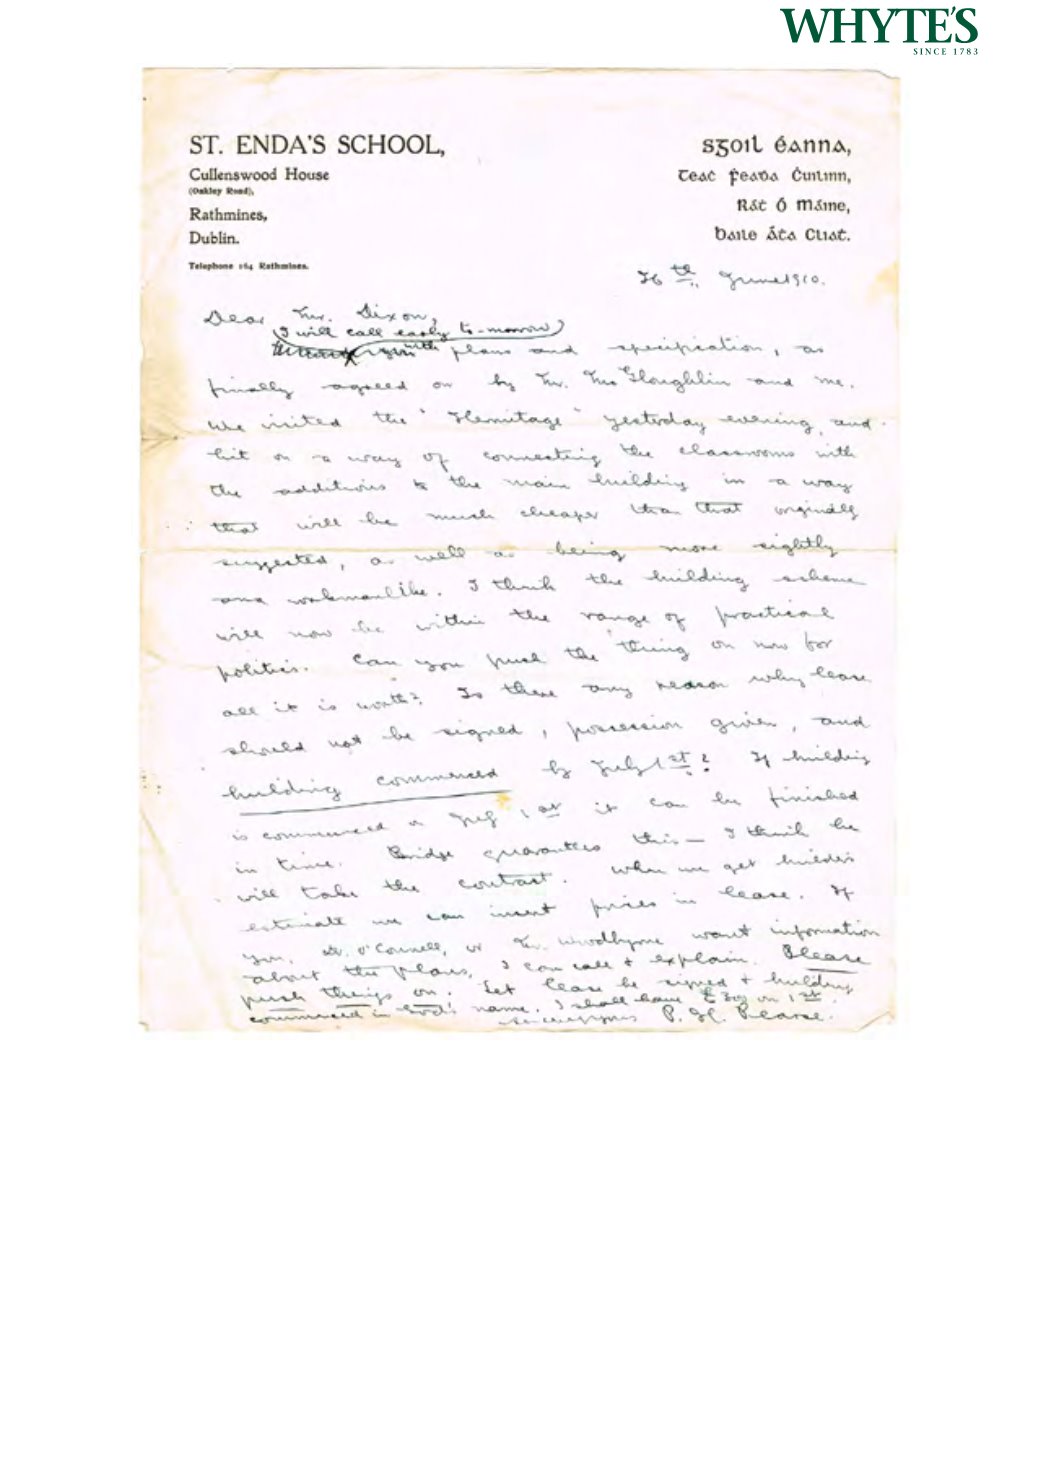 WHYTE'S
SINCE 1783
ST. ENDA'S SCHOOL,
Cullenswood House
(Oakley Road),
Rathmines,
Dublin.
Telephone 164 Rathmines.
Sgoil Éanna,
Teaċ Ḟeaḋa Ċuilinn,
Ráṫ Ó Máine,
Baile Áṫa Cliaṫ.
26th June 1910.
Dear Mr. Dixon,
I will call early to-morrow
with plans and specification, as
finally agreed on by Mr. MacGloughlin and me.
We visited the "Hermitage" yesterday evening, and
hit on a way of connecting the classrooms with
the additions to the main building in a way
that will be much cheaper than that originally
suggested, as well as being more sightly
and workmanlike. I think the building scheme
will now be within the range of practical
politics. Can you push the thing on now for
all it is worth? Is there any reason why lease
should not be signed, possession given, and
building commenced by July 1st? If building
is commenced on July 1st it can be finished
in time. Bridge guarantees this — I think he
will take the contract. When we get builder's
estimate we can insert prices in lease. If
you, Dr. O'Connell, or Mr. Woodbyrne want information
about the plans, I can call & explain. Please
push things on. Let lease be signed & building
commenced in God's name. I shall have £ on 1st.
Sincerely yours P. H. Pearse.